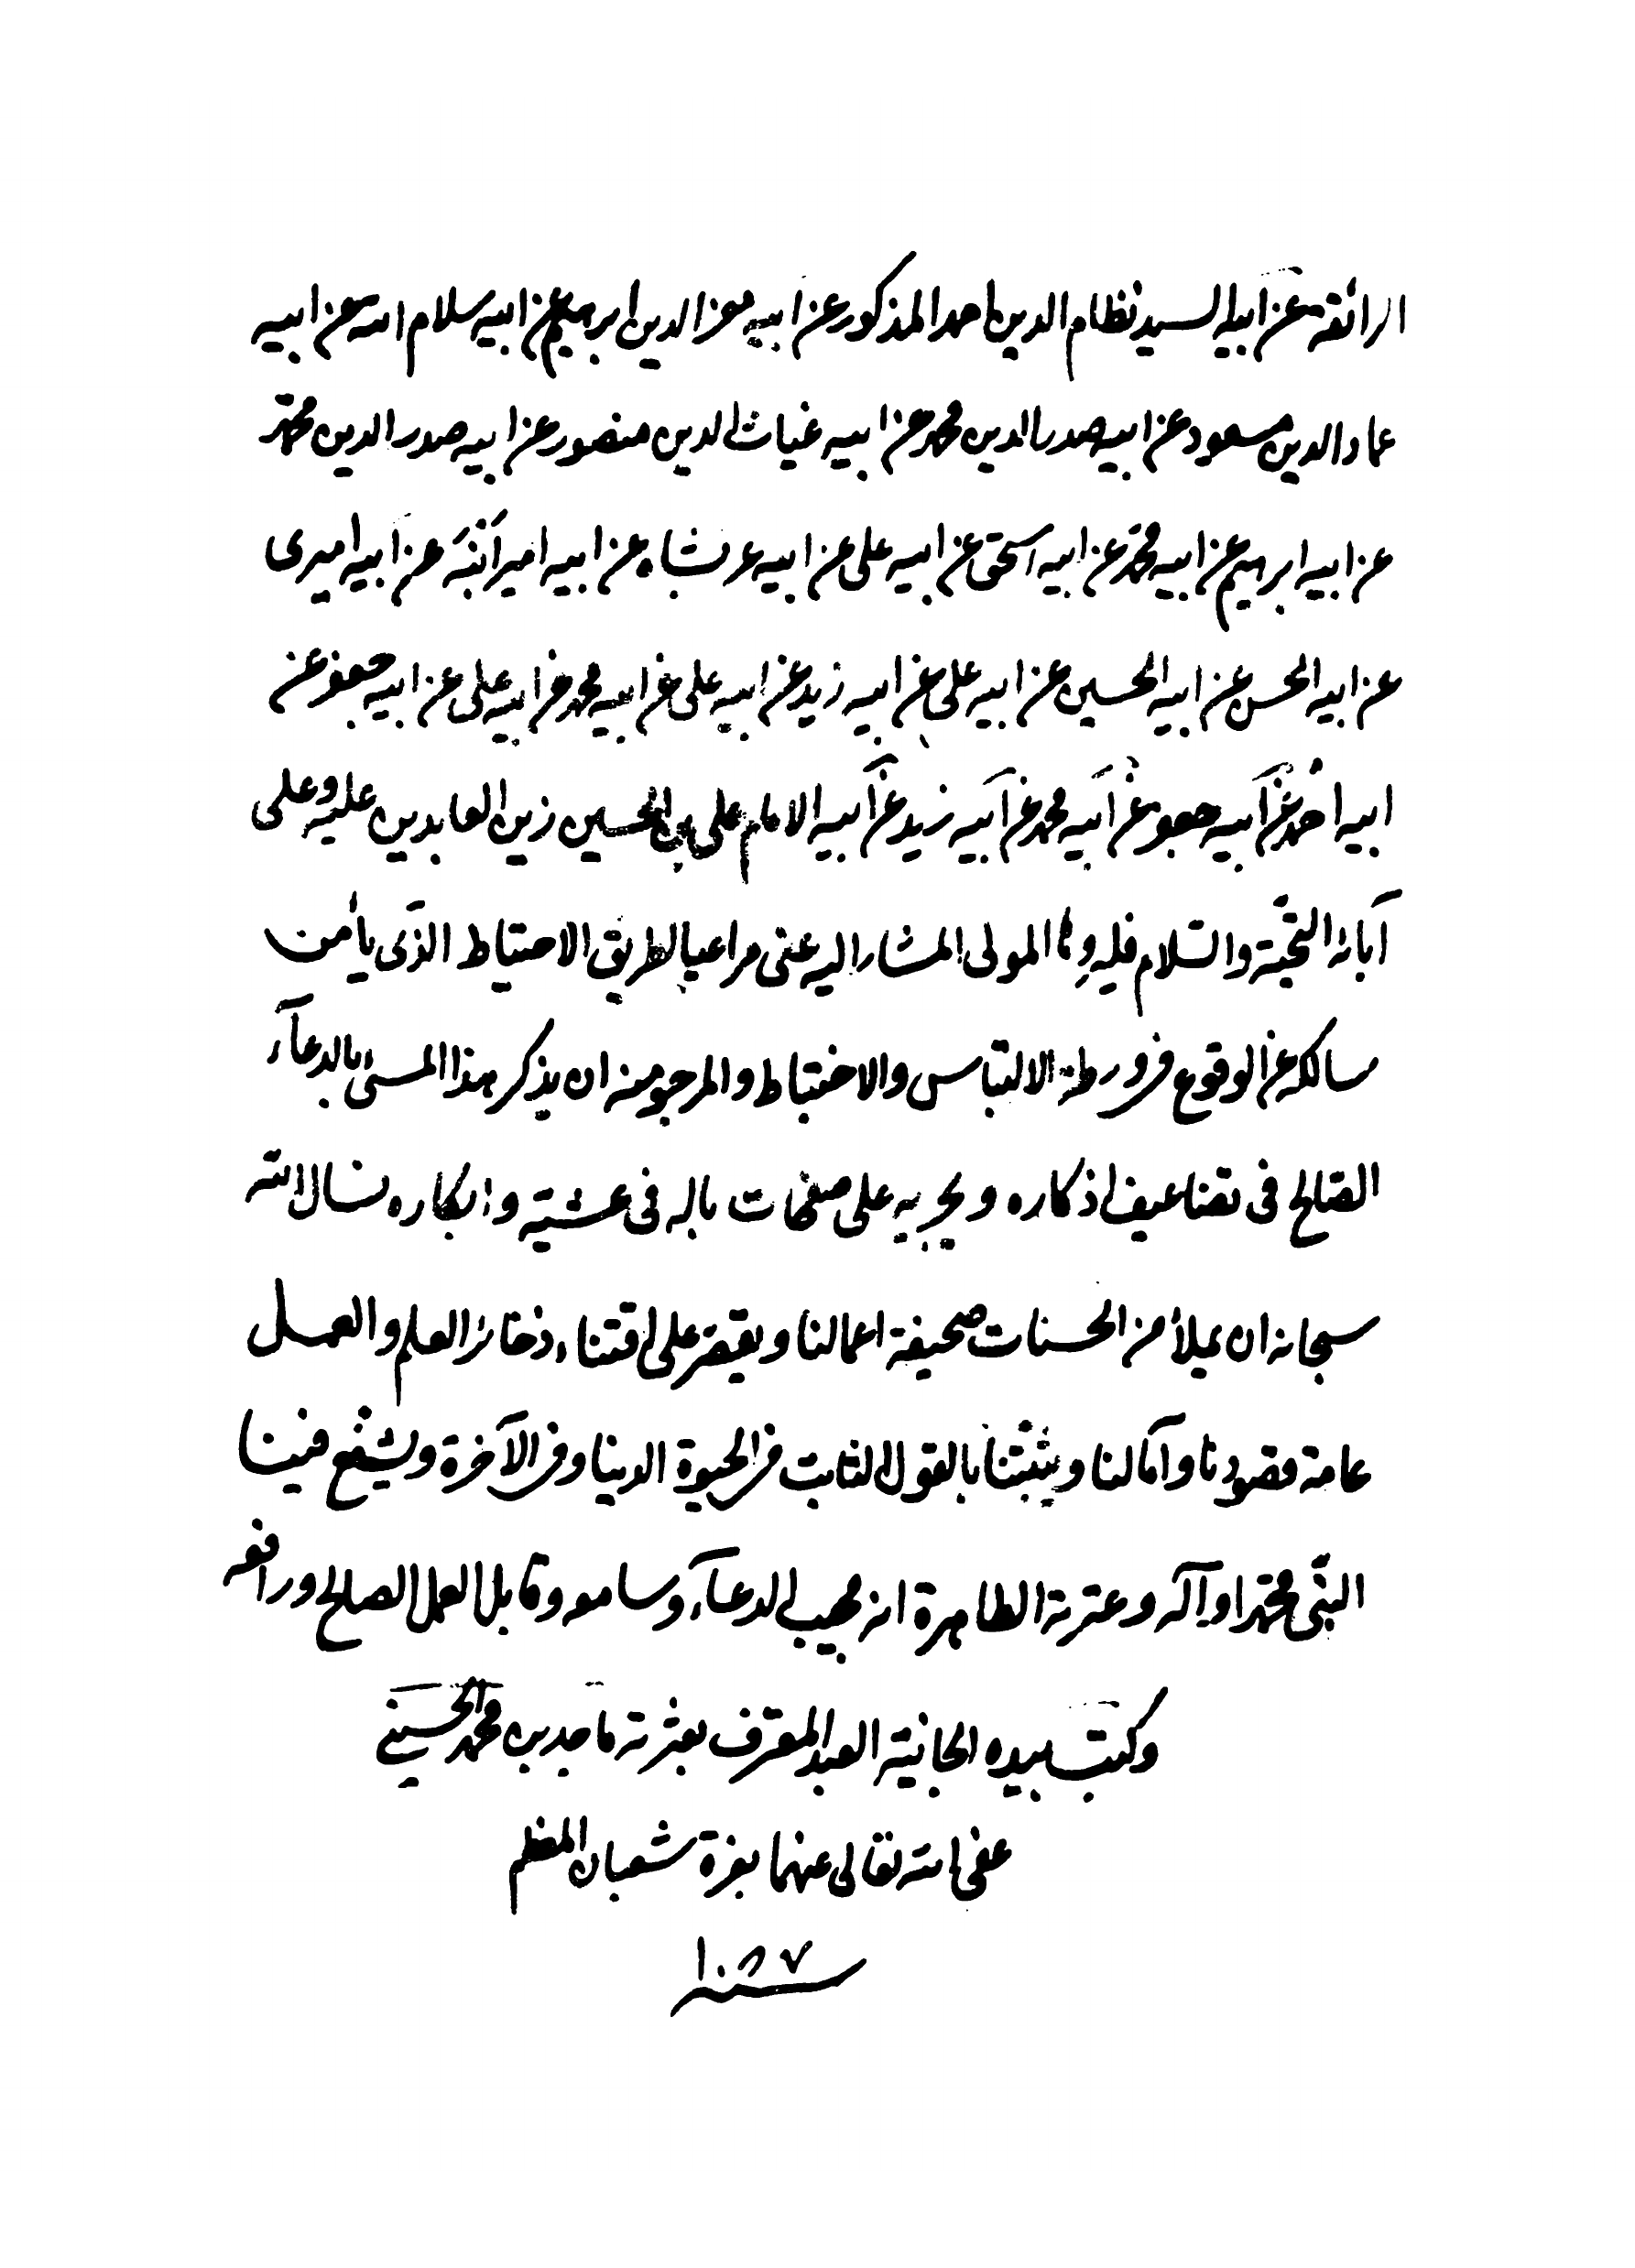 الرائقة عن ابيه السيد نظام الدين احمد المذكور عن ابيه معز الدين ابرهيم عن ابيه سلام الله عن ابيه
عماد الدين مسعود عن ابيه صدر الدين محمد عن ابيه غياث الدين منصور عن ابيه صدر الدين محمّد
عن ابيه ابرهيم عن ابيه محمّد عن ابيه اسحق عن ابيه على عن ابيه عربشاه عن ابيه اميرانبه عن ابيه اميرى
عن ابيه الحسن عن ابيه الحسين عن ابيه على عن ابيه زيد عن ابيه على عن ابيه محمد عن ابيه على عن ابيه جعفر عن
ابيه احمد عن ابيه جعفر عن ابيه محمد عن ابيه زيد عن ابيه الامام على بن الحسين زين العابدين عليه وعلى
آبائه التحيّة والسّلام فليروها المولى المشار اليه عنى مراعيا لطريق الاحتياط الذّى يأمن
سالكه عن الوقوع فى ورطة الالتباس والاختباط والمرجو منه ان يذكر هذا المسئ بالدعآء
الصّالح فى تضاعيف اذكاره ويجريه على صفحات باله فى عشيّه وابكاره نسال اللّه
سبحانه ان يملأ من الحسنات صحيفة اعمالنا ويقصر على اقتناء ذخائر العلم والعمل
عامة قصودنا وآمالنا ويثبّتنا بالقول الثابت فى الحيوة الدنيا وفى الآخرة ويشفّع فينا
النبّى محمّدا وآله وعترته الطاهرة انه مجيب الدعآء وسامعه وقابل العمل الصالح ورافعه
وكتب بيده الجانية العبد المعترف بعثرته ماجد بن محمد الحسينى
عفى اللّه تعالى عنهما بغرة شعبان المعظم
سنة ١٠٨٧